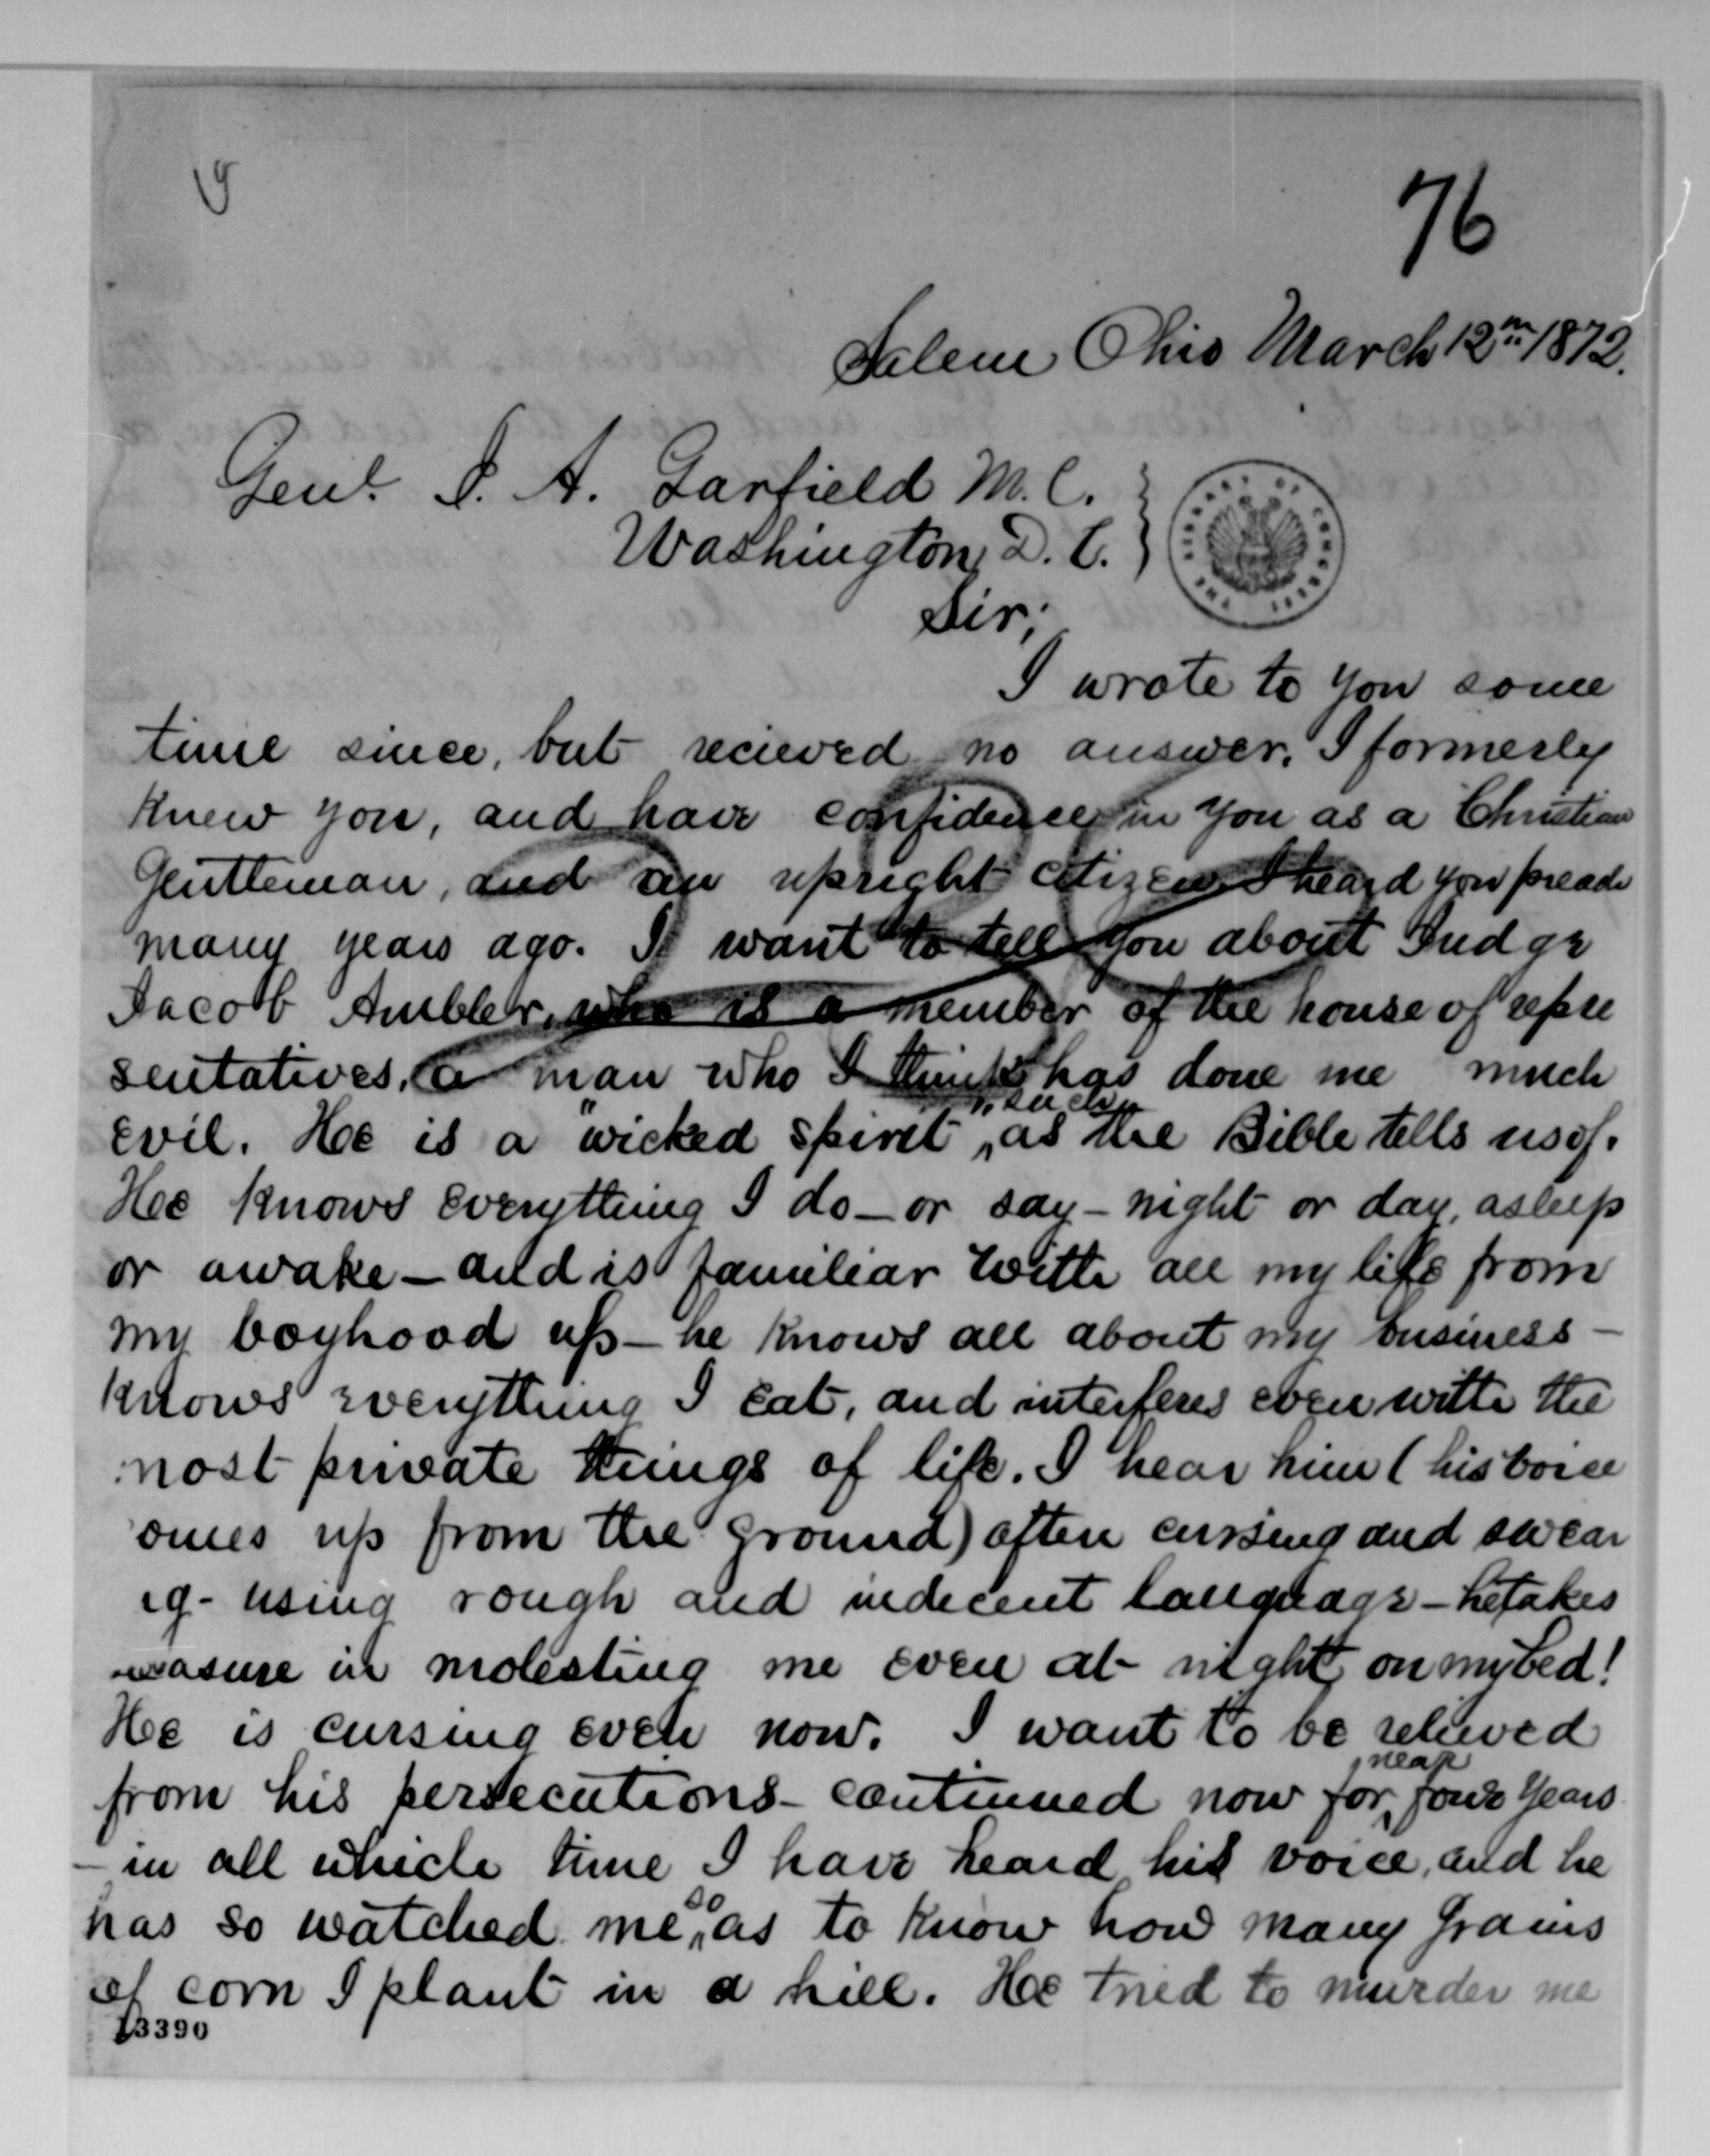 76
Salem Ohio March 12th 1872.
Genl. J. A. Garfield M. C.
Washington, D. C.
Sir;
I wrote to you some
time since, but recieved no answer. I formerly
knew you, and have confidence in you as a Christian
Gentleman, and an upright citizen. I heard you preach
many years ago. I want to tell you about Judge
Jacob Ambler, who is a member of the house of repre
sentatives, a man who I think has done me much
evil. He is a "wicked spirit", such as the Bible tells us of.
He knows everything I do – or say – night or day, asleep
or awake – and is familiar with all my life from
my boyhood up – he knows all about my business –
knows everything I eat, and interferes even with the
most private things of life. I hear him (his voice
omes up from the ground) often cursing and swear
ig - using rough and indecent language – he takes
easure in molesting me even at night, on my bed!
He is cursing even now. I want to be relieved
from his persecutions – continued now for near four years
– in all which time I have heard his voice, and he
has so watched me, so as to know how many grains
of corn I plant in a hill. He tried to murder me
13390
THE LIBRARY OF CONGRESS